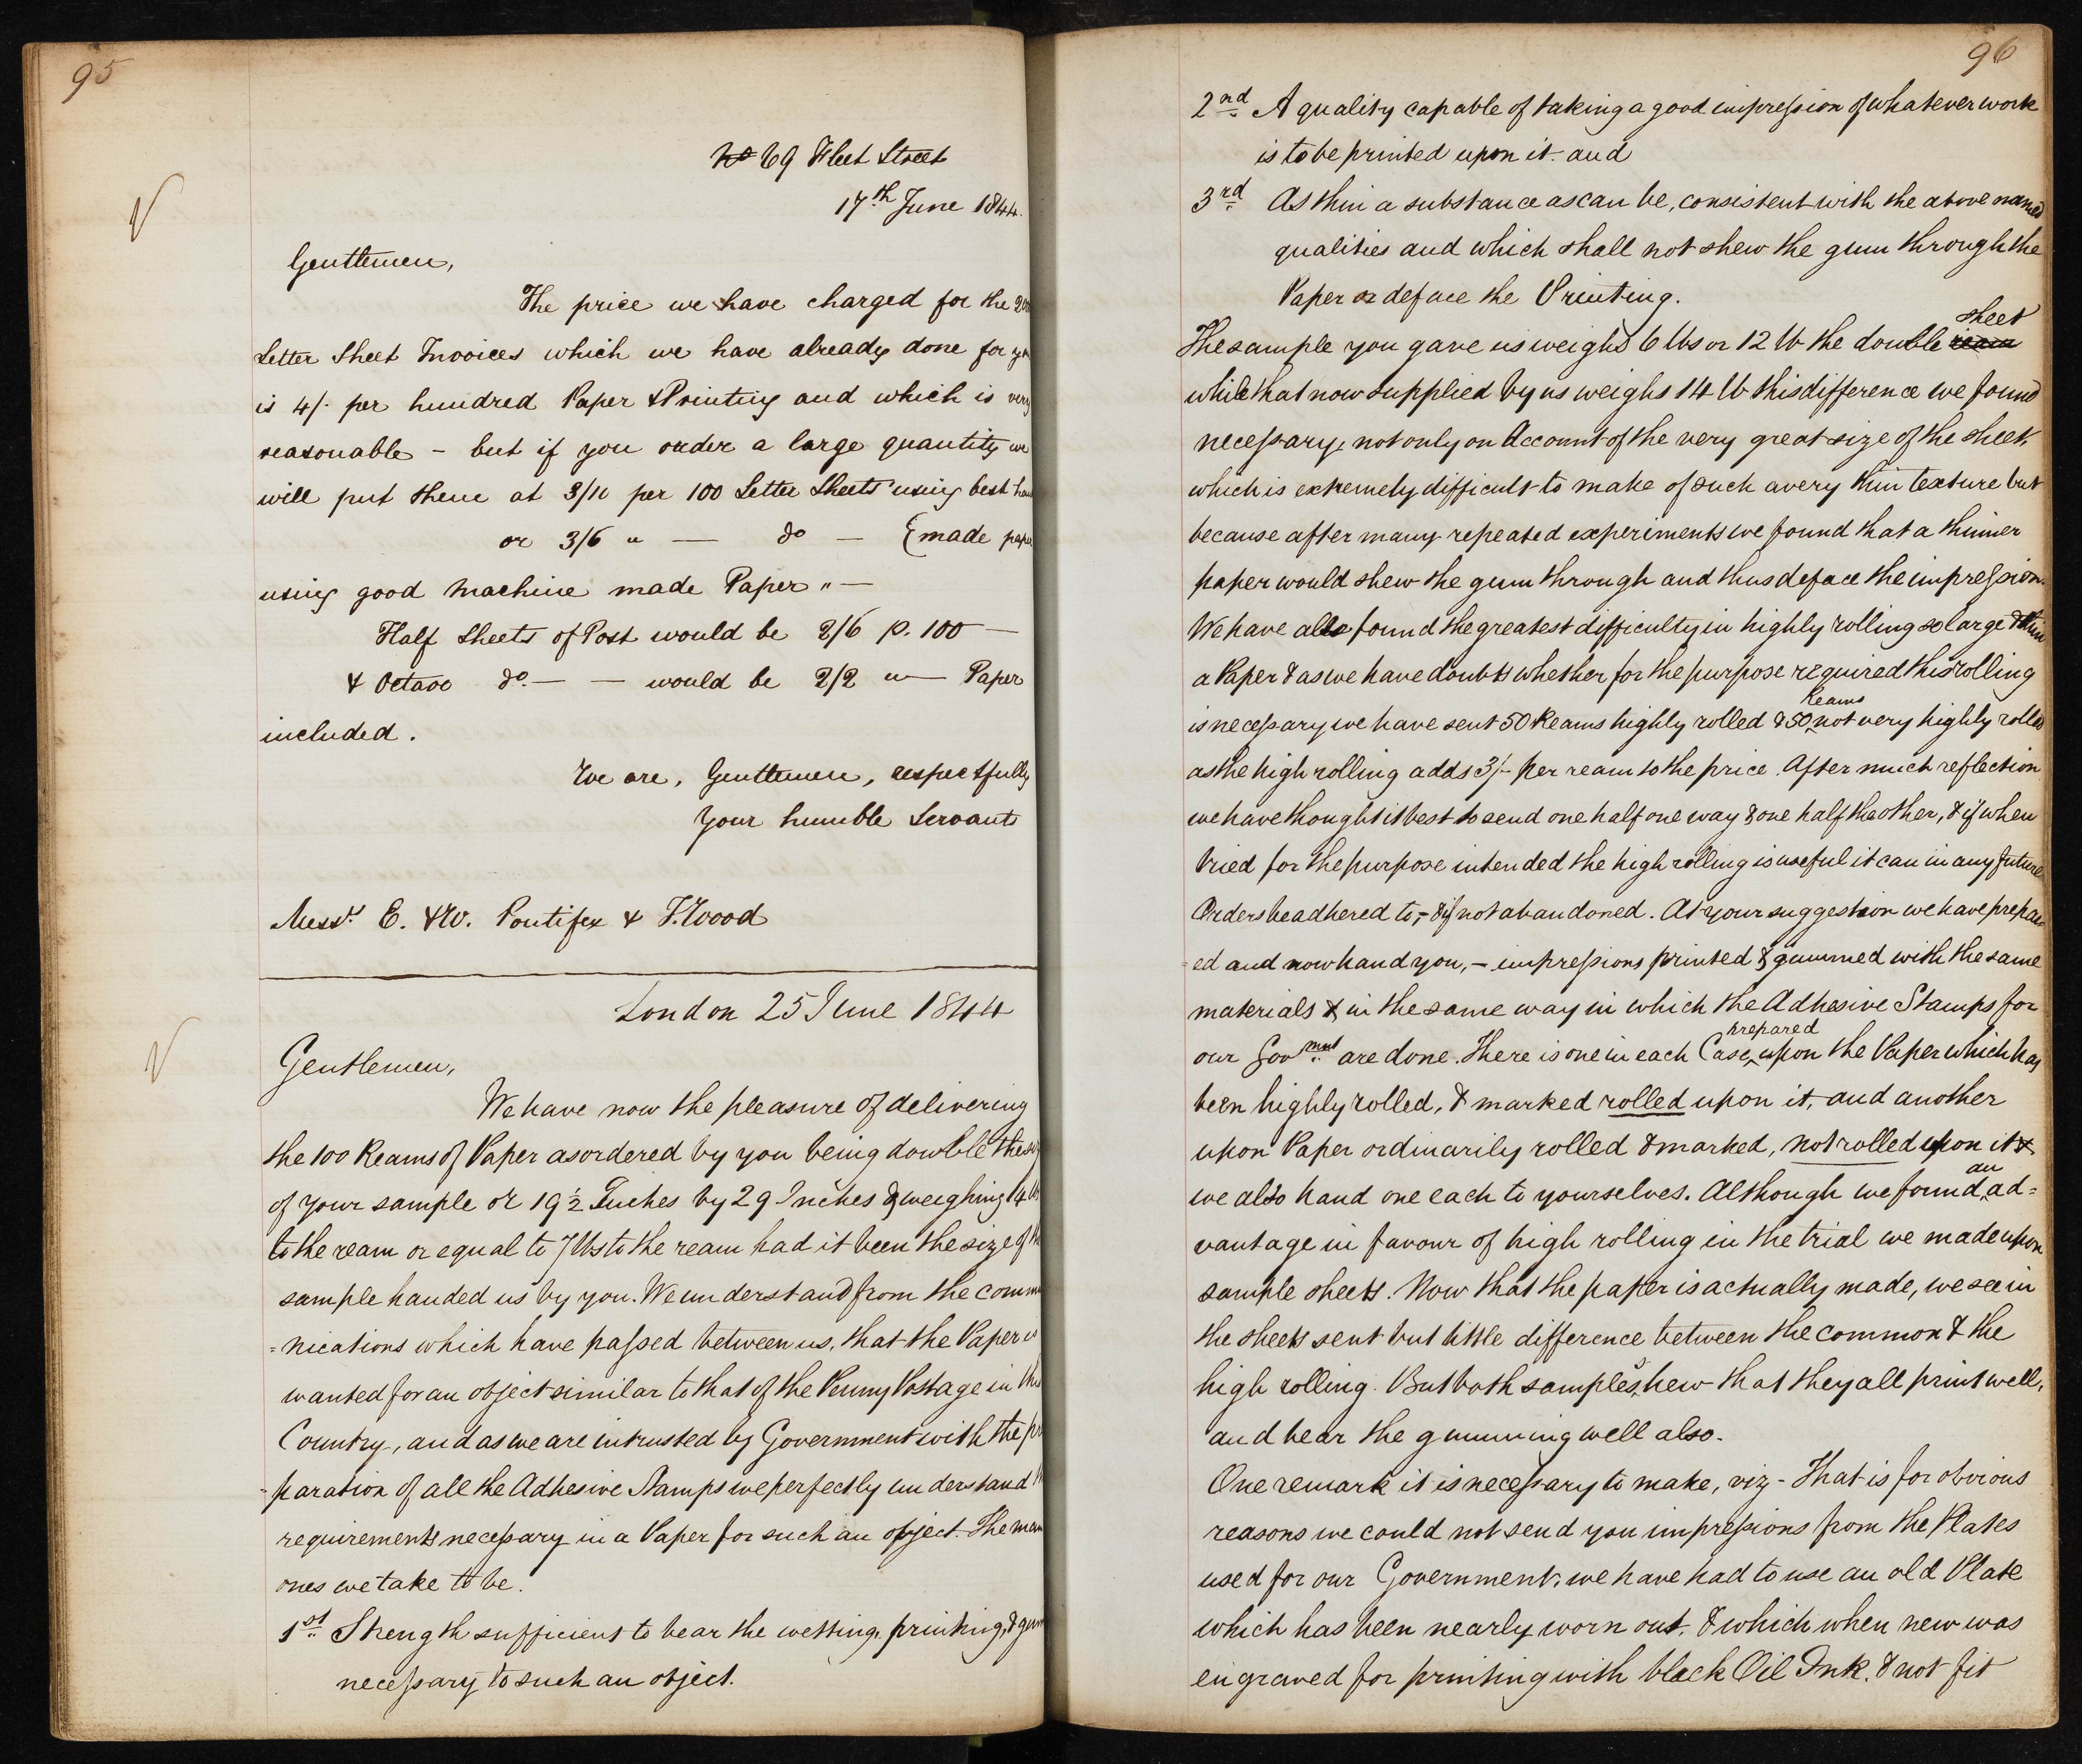 95
No 69 Fleet Street
17th June 1844.
Gentlemen,
The price we have charged for the
Letter Sheet Invoices which we have already done for
is 4/- per hundred Paper & Printing and which is very
reasonable - but if you order a large quantity we
will put them at 3/10 per 100 Letter Sheets using best
or 3/6 " — do — {made paper
using good machine made Paper " —
Half Sheets of Post would be 2/6 p. 100 —
& Octavo do. — — would be 2/2 " — Paper
included.
We are, Gentlemen, respectfully
Your humble Servants
Messrs. E. & W. Pontifex & J. Wood
London 25 June 1844
Gentlemen,
We have now the pleasure of delivering
the 100 Reams of Paper as ordered by you being dowble the
of your sample or 19 1/2 Inches by 29 Inches & weighing 14
to the ream or equal to 7 lbs to the ream had it been the size of
sample handed us by you. We understand from the commu
=nications which have passed between us, that the Paper is
wanted for an object similar to that of the Penny Postage in this
Country, and as we are intrusted by Government with the pre
=paration of all the Adhesive Stamps we perfectly understand
requirements necessary in a Paper for such an object. The
ones we take to be.
1st. Strength sufficient to bear the wetting, printing, & gum
necessary to such an object.
96
2nd. A quality capable of taking a good impression of whatever work
is to be printed upon it. and
3rd. As thin a substance as can be, consistent with the above named
qualities and which shall not shew the gum through the
Paper or deface the Printing.
sheet
The sample you gave us weighs 6 lbs or 12 lb the double ream
while that now supplied by us weighs 14 lb this difference we found
necessary, not only on Account of the very great size of the sheet,
which is extremely difficult to make of such a very thin texture but
because after many repeated experiments we found that a thinner
paper would shew the gum through and thus deface the impression.
We have also found the greatest difficulty in highly rolling so large & thin
a Paper & as we have doubts whether for the purpose required this rolling
Reams
is necessary we have sent 50 Reams highly rolled & 50 not very highly rolled
as the high rolling adds 3/- per ream to the price. After much reflection
we have thought it best to send one half one way & one half the other, & if when
tried for the purpose intended the high rolling is useful it can in any future
Orders be adhered to, - & if not abandoned. At your suggestion we have prepar
=ed and now hand you, - impressions printed & gummed with the same
materials & in the same way in which the Adhesive Stamps for
prepared
our Govmnt. are done. There is one in each Case, upon the Paper which has
been highly rolled, & marked rolled upon it, and another
upon Paper ordinarily rolled & marked, not rolled upon it &
an
we also hand one each to yourselves. Although we found ad=
vantage in favour of high rolling in the trial we made upon
sample sheets. Now that the paper is actually made, we see in
the sheets sent but little difference between the common & the
high rolling. But both samples shew that they all print well,
and bear the gumming well also.
One remark it is necessary to make, viz - That is for obvious
reasons we could not send you impressions from the Plates
used for our Government, we have had to use an old Plate
which has been nearly worn out, & which when new was
engraved for printing with black Oil Ink. & not fit